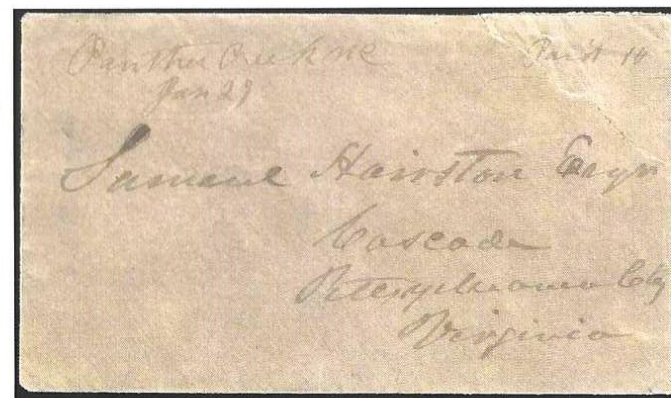 Panther Creek NC Paid 10
Jan 29
Samuel Hairston Esqr
Cascade
Pittsylvania Cty
Virginia